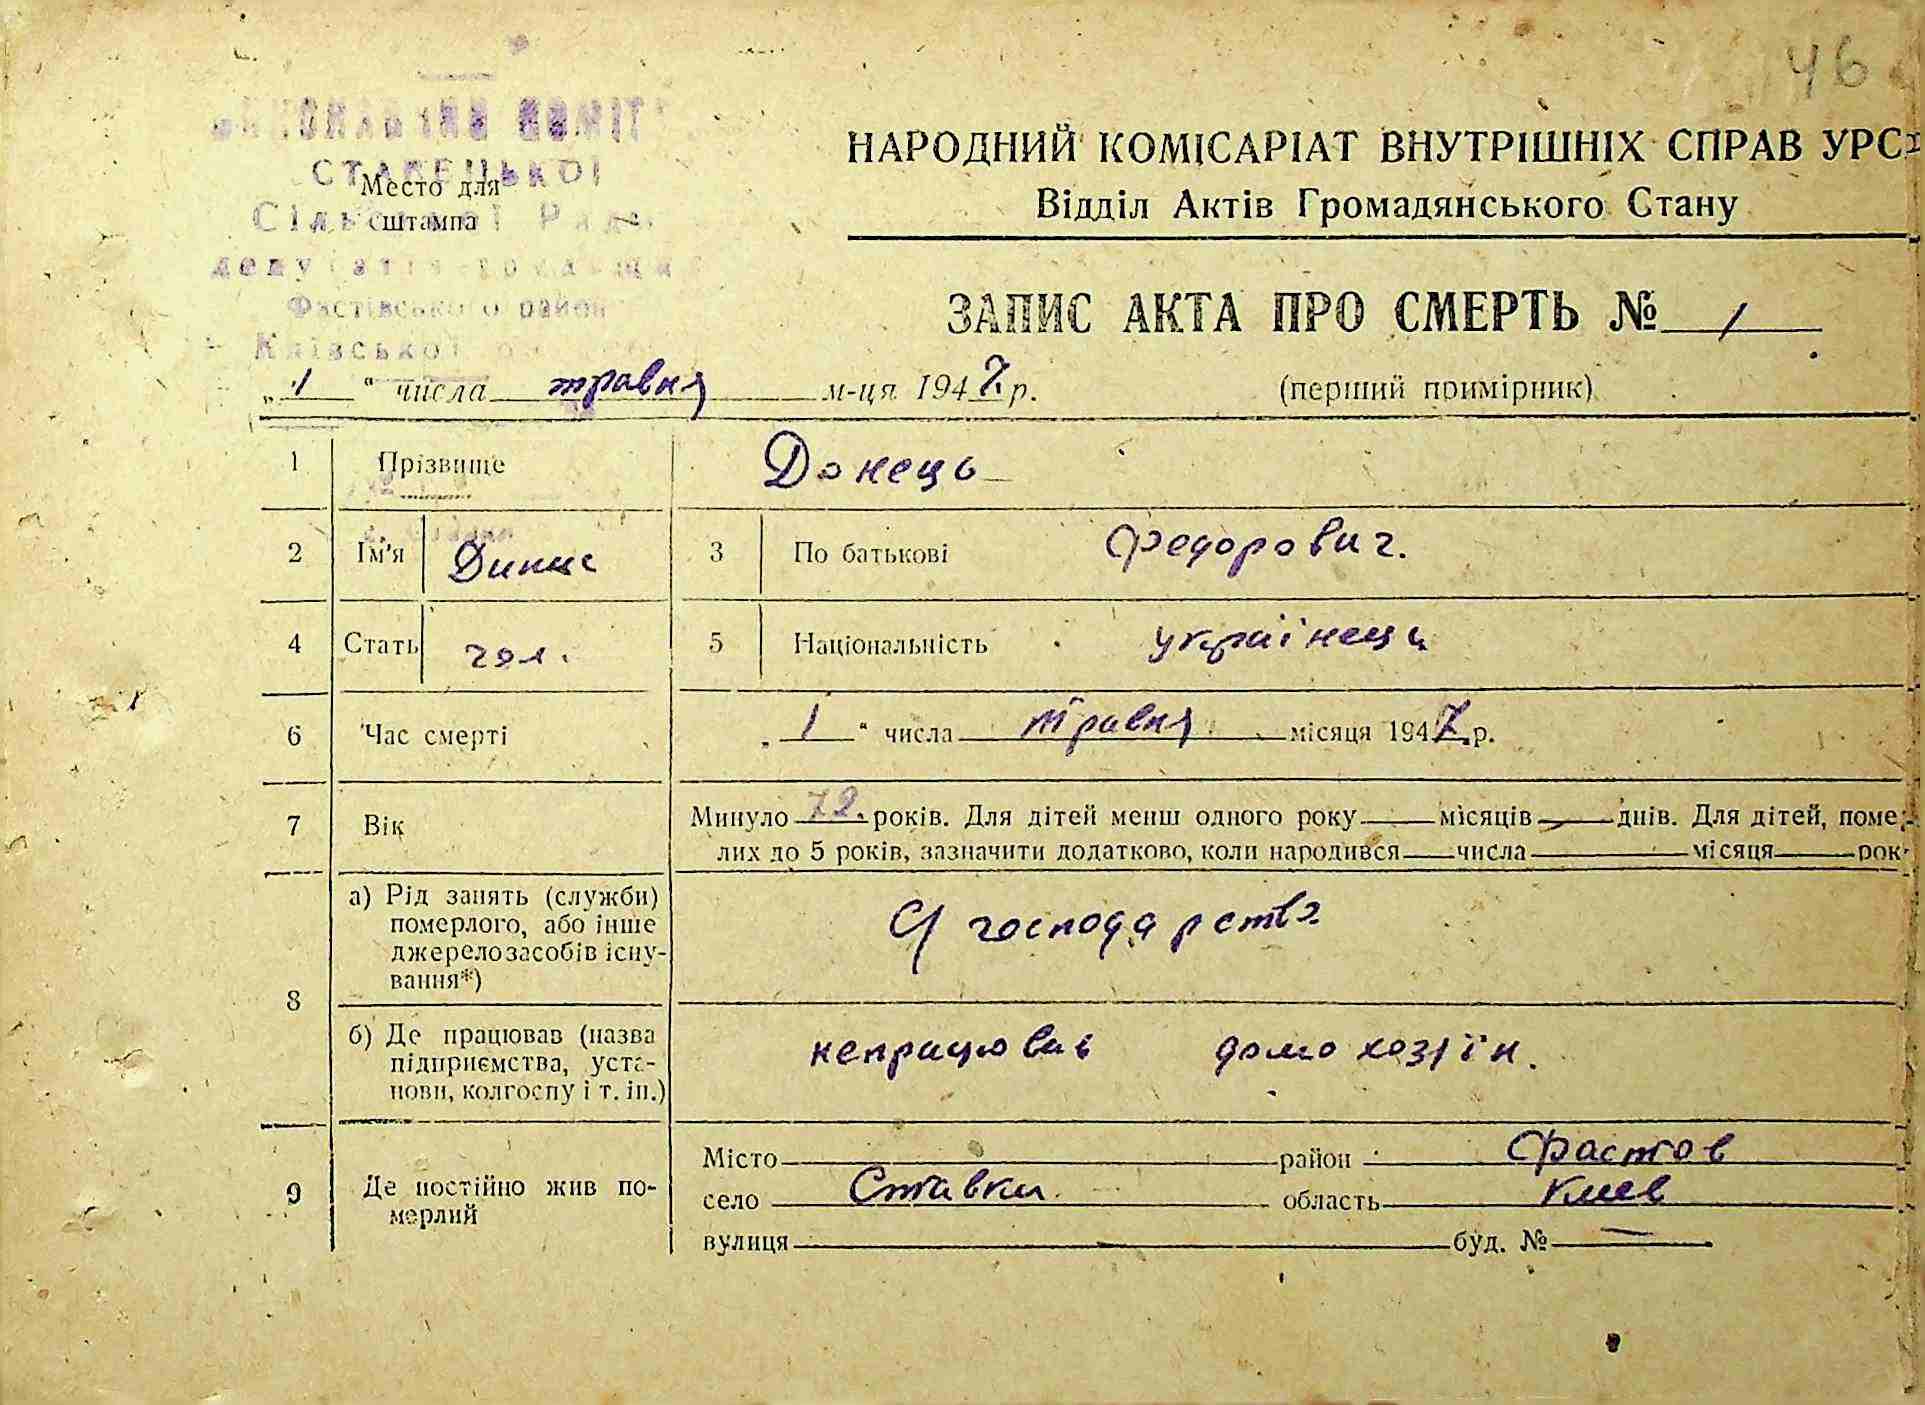 46
НАРОДНИЙ КОМІСАРІАТ ВНУТРІШНІХ СПРАВ УРСР
Відділ Актів Громадянського Стану
СТАВЕЦЬКОЇ
Место для
штампа
Сільської Ради
депутатів трудящих
Фастівського район
Київської
ЗАПИС АКТА ПРО СМЕРТЬ № 1
„1“ числа травня м-ця 1947 р. (перший примірник)
1 Прізвище Донець
2 Ім'я Динис 3 По батькові Федорович.
4 Стать чол. 5 Національність українець
6 Час смерті „1“ числа травня місяця 1947. р.
7 Вік Минуло 72. років. Для дітей менш одного року місяців днів. Для дітей, поме-
лих до 5 років, зазначити додатково, коли народився числа місяця рок
8 а) Рід занять (служби)
померлого, або інше
джерело засобів існу-
вання*)
С/ господарство
б) Де працював (назва
підприємства, уста-
нови, колгоспу і т. ін.)
непрацював домохозяїн.
9 Де постійно жив по-
мерлий
Місто район Фастов
село Ставки область Киев
вулиця буд. № —